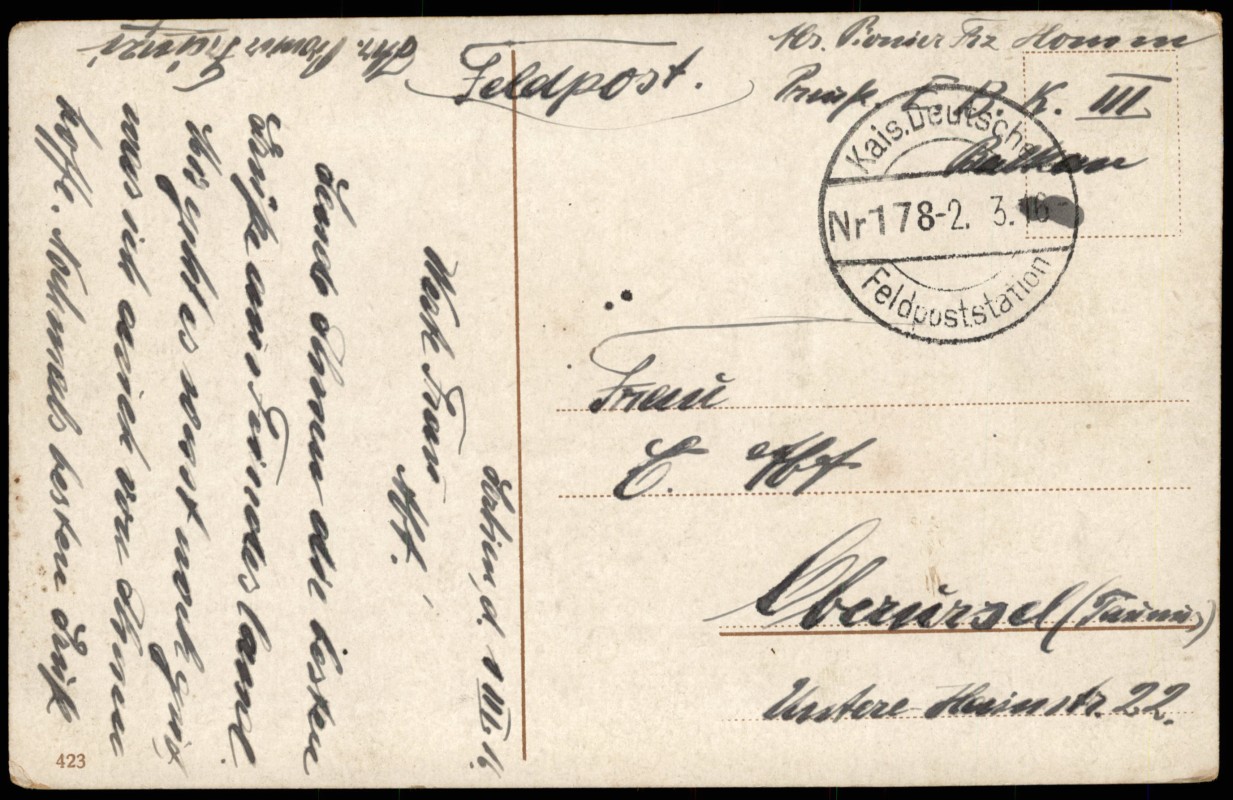 Feldpost.
Pionier Frz Homm
Preuß. K. III
Balkan
Kais. Deutsche
Nr 178 -2. 3. 16
Feldpoststation
Frau
E.
Oberursel (Taunus)
Untere Hainstr. 22.
d. 1 III. 16.
Werte Frau
Sende Ihnen die besten
Grüße aus Feindesland
geht es sonst noch gut
was ich auch von Ihnen
hoffe. Nochmals besten Gruß
Pionier
423